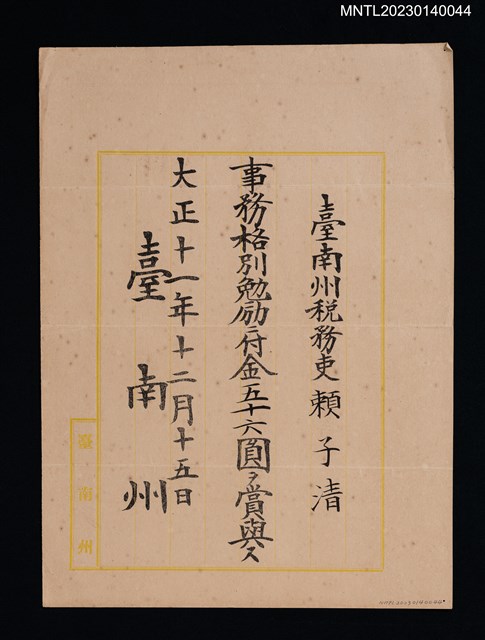 MNTL20230140044
臺南州税務吏 賴子清
事務格別勉励ニ付金五十六圓ヲ賞與ス
大正十一年十二月十五日
臺南州
臺南州
MNTL20230140044